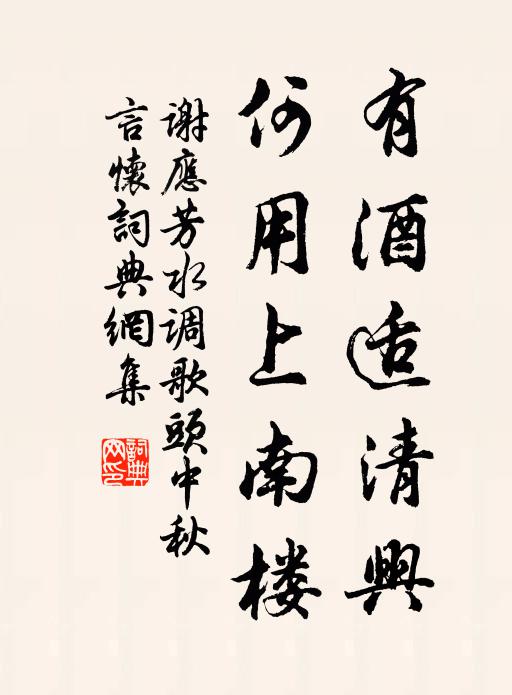 有酒适清興
何用上南楼
謝應芳水调歌頭中秋
言懷詞典網集
詞典网印